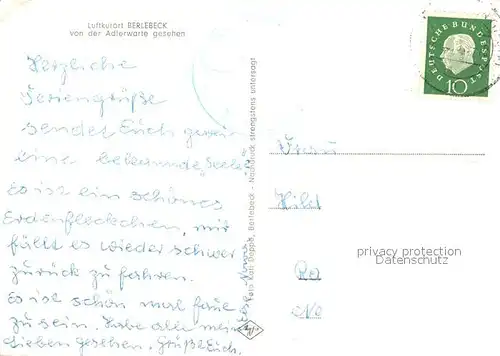 Luftkurort BERLEBECK
von der Adlerwarte gesehen
Herzliche
Feriengrüße
sendet Euch
eine bekannte Seele
Es ist ein schönes
Erdenfleckchen, mir
fällt es wieder schwer
zurück zu fahren.
Es ist schön mal faul
zu sein. Habe alle meine
Lieben gesehen. Grüße Euch
Berlebeck - Nachdruck strengstens untersagt
Agfa
DEUTSCHE BUNDESPOST
10
Frau
Hild
privacy protection
Datenschutz